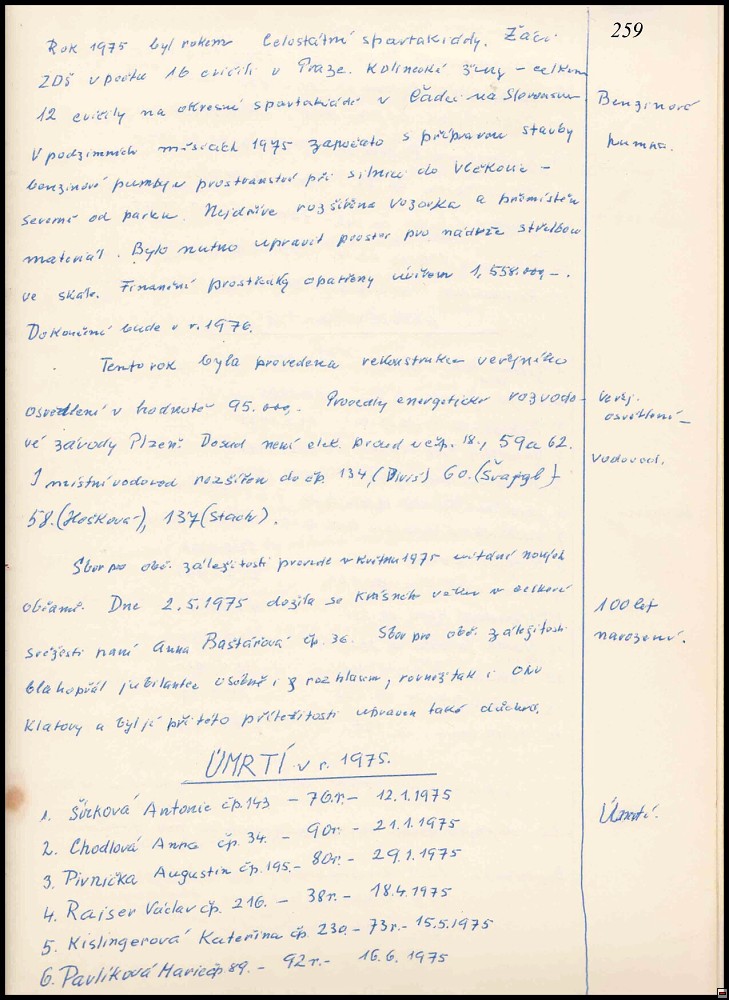 259
Rok 1975 byl rokem Celostátní spartakiády. Žáci
ZDŠ v počtu 16 cvičili v Praze. Kolinecké ženy – celkem
12 cvičily na okresní spartakiádě v Čadci na Slovensku
V podzimních měsících 1975 započato s přípravou stavby
benzinové pumpy v prostranství při silnici do Vlčkovic –
severně od parku. Nejdříve rozšířena vozovka a přemístěn
materiál. Bylo nutno upravit prostor pro nádrže střelbou
ve skále. Finanční prostředky opatřeny úvěrem 1,558.000,–.
Dokončení bude v r. 1976.
Tento rok byla provedena rekonstrukce veřejného
osvětlení v hodnotě 95.000,. Provedly energetické rozvodo-
vé závody Plzeň. Dosud není elek. proud v čp. 18., 59 a 62.
I místní vodovod rozšířen do čp. 134, (Diviš) 60. (Švajgl)
58. (Hošková), 137 (Stach).
Sbor pro obč. záležitosti provede v květnu 1975 vítání nových
občanů. Dne 2.5.1975 dožila se krásného věku v
svěžesti paní Anna Baštářová čp. 36. Sbor pro obč. záležitosti
blahopřál jubilantce osobně i z rozhlasem, rovněž tak i ONV
Klatovy a byl jí při této příležitosti upraven také důchod.
ÚMRTÍ v r. 1975.
1. Šírková Antonie čp. 143 – 76.r. – 12.1.1975
2. Chodlová Anna čp. 34. – 90r. – 21.1.1975
3. Pivnička Augustin čp. 195. – 80r. – 29.1.1975
4. Rajser Václav čp. 216. – 38r. – 18.4.1975
5. Kislingerová Kateřina čp. 230. – 73r. – 15.5.1975
6. Pavlíková Marie čp 89. – 92r. – 16.6.1975
Benzinová
pumpa.
Veřej.
osvětlení –
Vodovod.
100 let
narození.
Úmrtí.